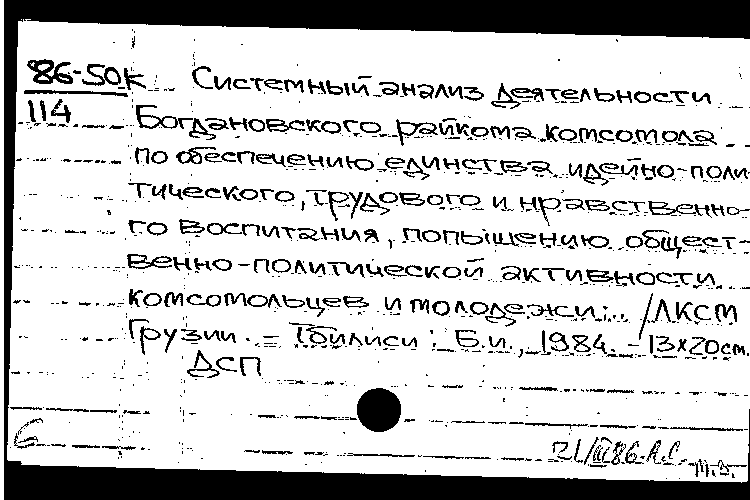 86-50к Системный анализ деятельности
114 Богдановского райкома комсомола
по обеспечению единства идейно-поли-
тического, трудового и нравственно-
го воспитания, попышению общест-
венно-политической активности
комсомольцев и молодежи:.. /ЛКСМ
Грузии. – Тбилиси: Б.и., 1984. – 13×20см.
ДСП
6
21/III 86.